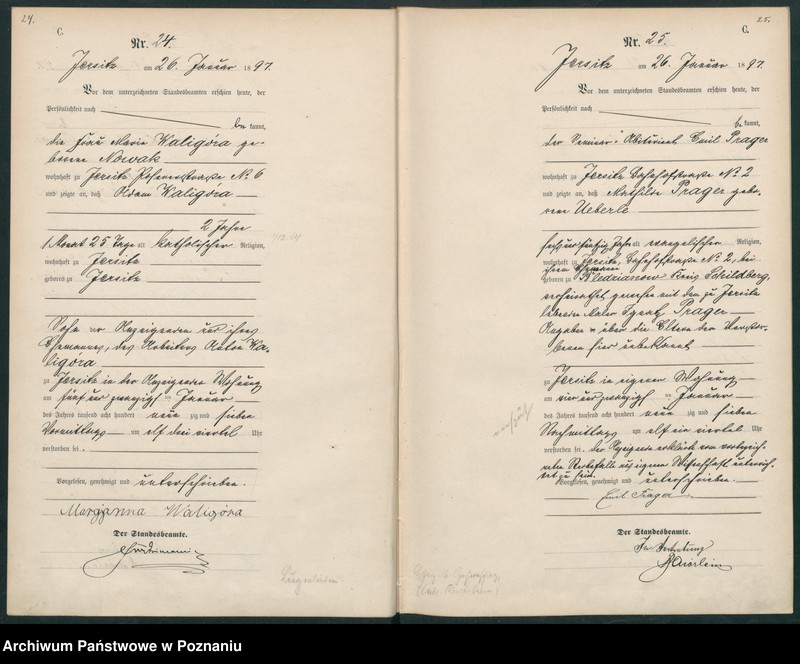 24.
C.
Nr. 24.
Jersitz am 26. Januar 1897.
Vor dem unterzeichneten Standesbeamten erschien heute, der
Persönlichkeit nach
be kannt,
die Frau Maria Waligóra ge-
borene Nowak
wohnhaft zu Jersitz Posenerstraße No 6
und zeigte an, daß Adam Waligóra
2 Jahre
1 Monat 25 Tage alt katholischer Religion,
wohnhaft zu Jersitz
geboren zu Jersitz
Sohn der Anzeigenden und ihres
Ehemannes, des Arbeiters Anton Wa-
ligóra
zu Jersitz in der Anzeigenden Wohnung
am fünf und zwanzigsten Januar
des Jahres tausend acht hundert neun zig und sieben
Vormittags um elf drei viertel Uhr
verstorben sei.
Vorgelesen, genehmigt und unterschrieben.
Maryjanna Waligóra
Der Standesbeamte.
25.
C.
Nr. 25.
Jersitz am 26. Januar 1897.
Vor dem unterzeichneten Standesbeamten erschien heute, der
Persönlichkeit nach
be kannt,
der Seminar-Abiturient Emil Prager
wohnhaft zu Jersitz Bahnhofstraße No 2
und zeigte an, daß Mathilde Prager gebo-
rene Ueberle
fünfzig Jahre alt evangelischer Religion,
wohnhaft zu Jersitz, Bahnhofstraße No 2, bei
ihrem Ehemann
geboren zu Kreis Schildberg,
verheirathet gewesen mit dem zu Jersitz
lebenden Maler Prager
Angaben über die Eltern der Verstor-
benen hier unbekannt
zu Jersitz in eigener Wohnung
am vier und zwanzigsten Januar
des Jahres tausend acht hundert neun zig und sieben
Nachmittags um elf ein viertel Uhr
verstorben sei. Der Anzeigende erklärte von vorbezeich-
neten Sterbefalle aus eigener Wissenschaft unterrich-
tet zu sein.
Vorgelesen, genehmigt und unterschrieben.
Emil Prager
Der Standesbeamte.
In Vertretung
Archiwum Państwowe w Poznaniu